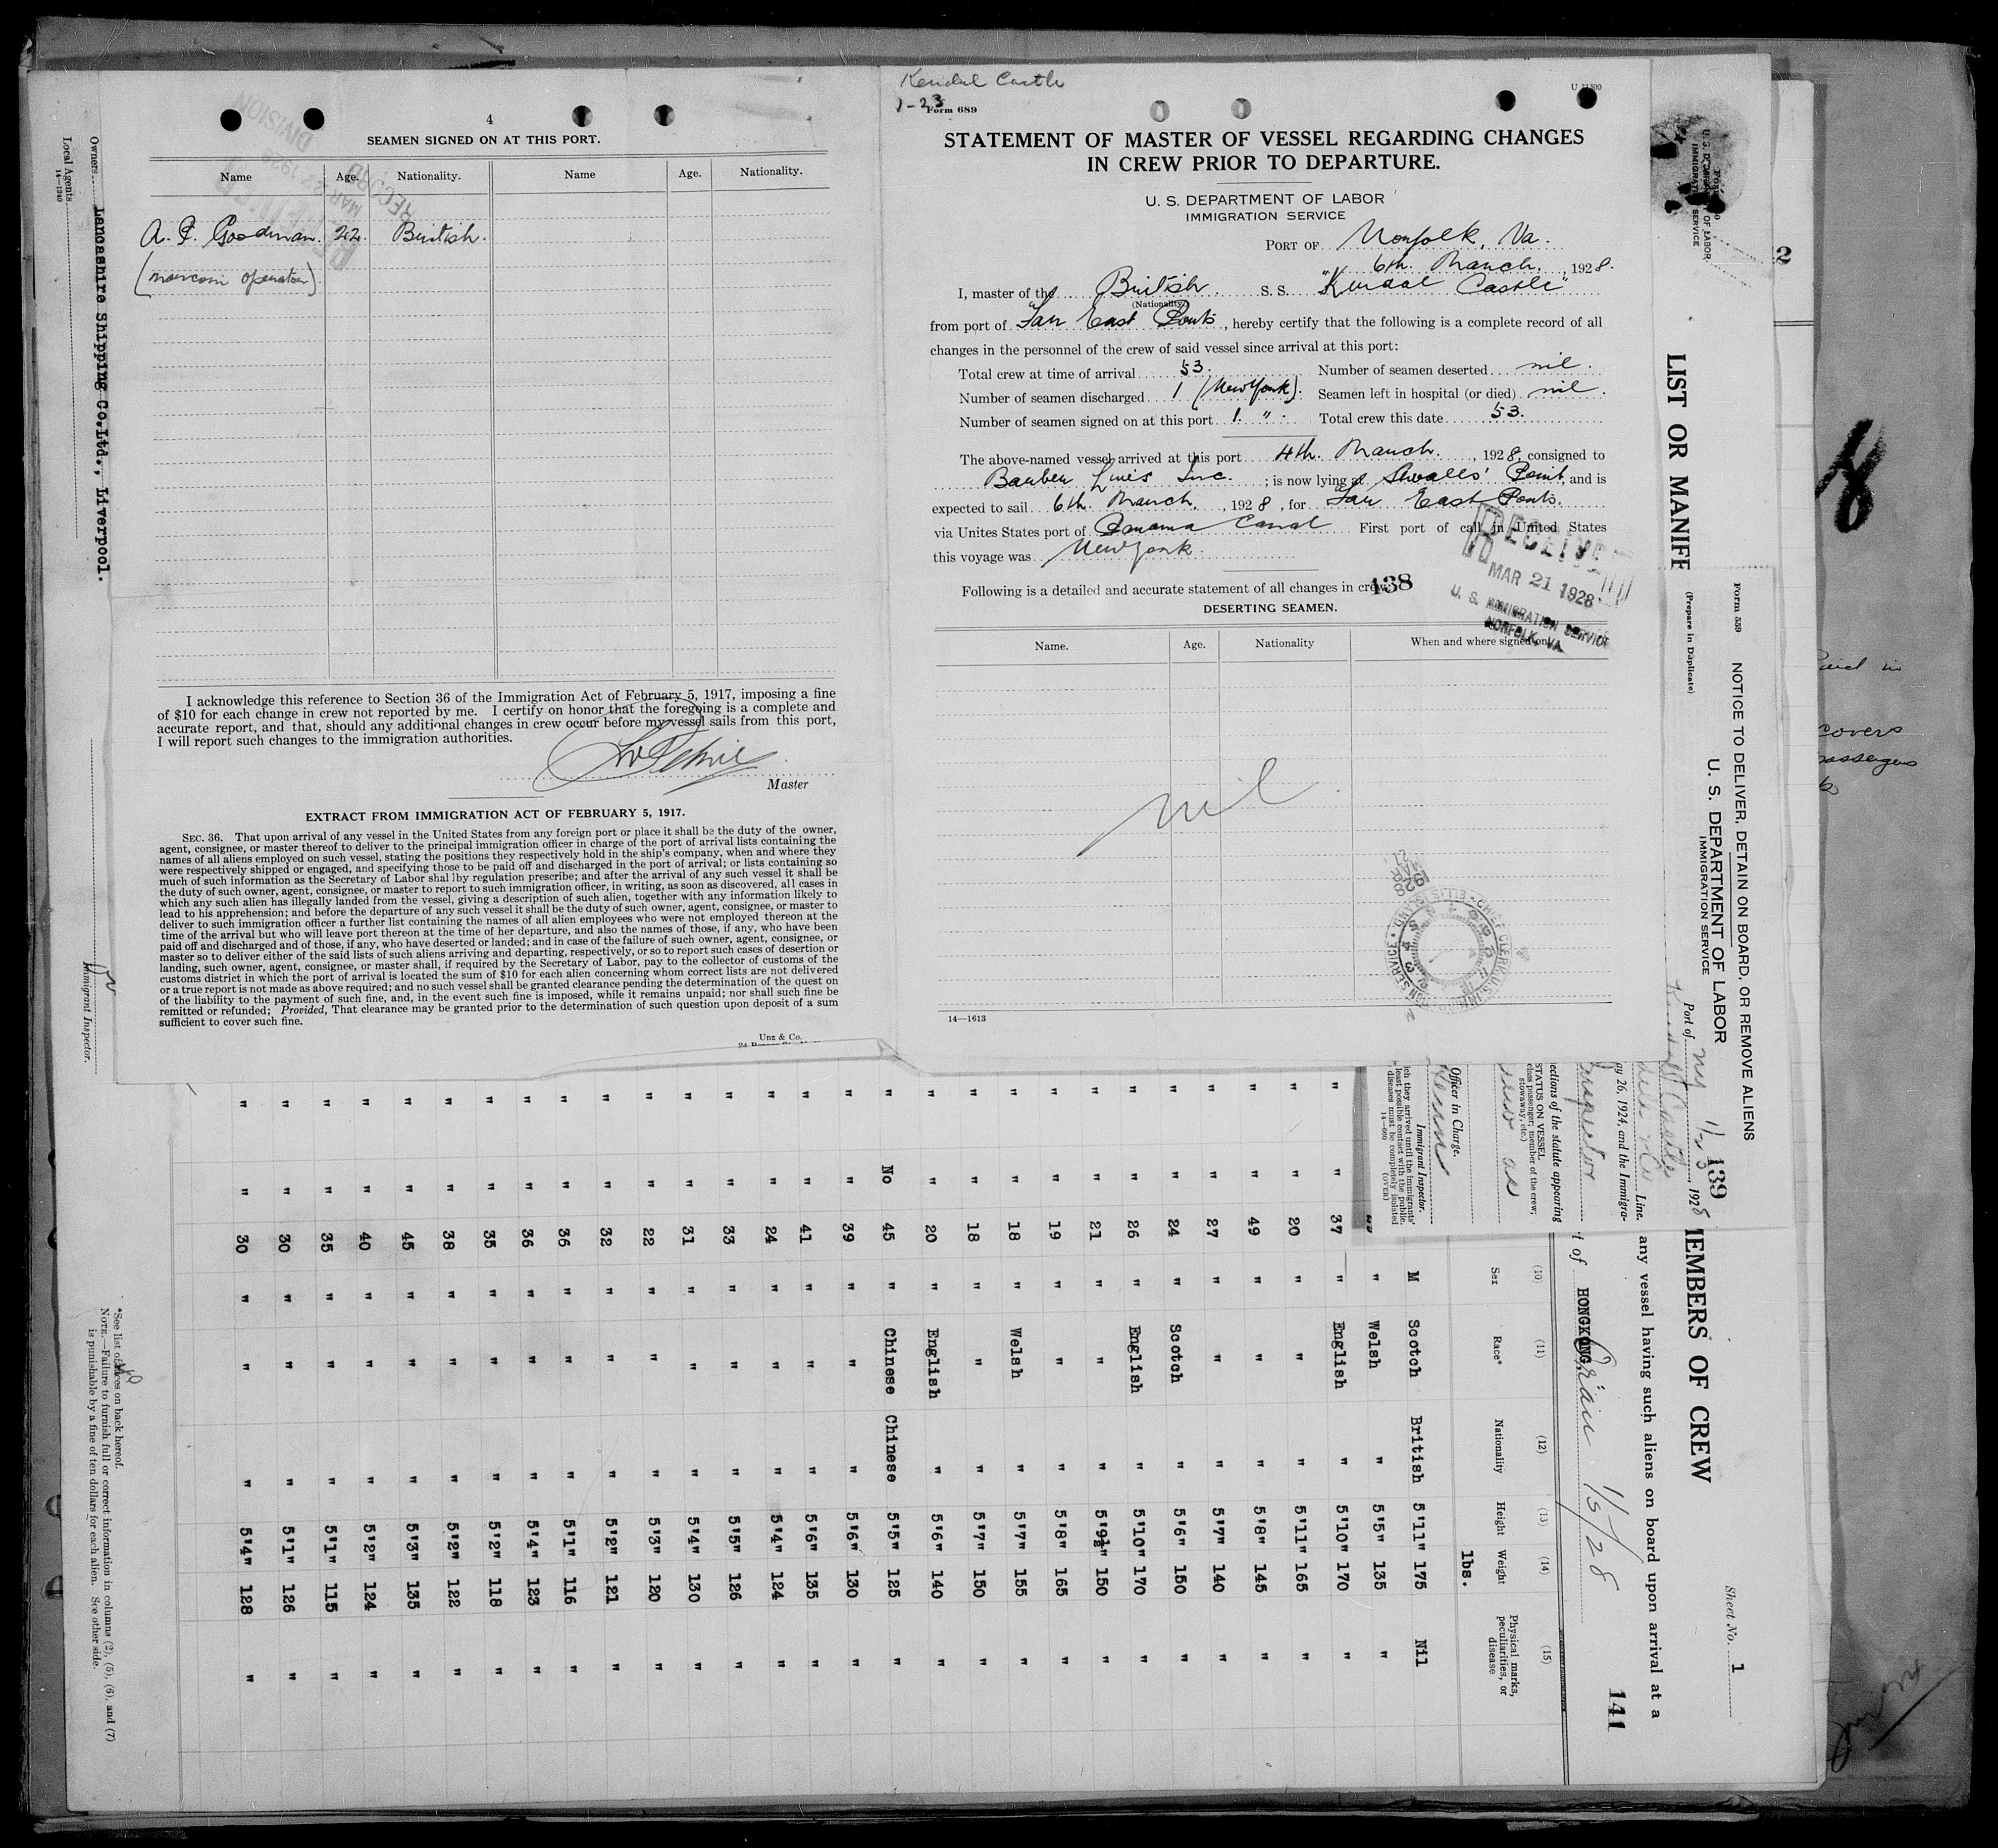 4
SEAMEN SIGNED ON AT THIS PORT.
Name Age. Nationality. Name Age. Nationality.
A. F. Goodman. 22. British.
(marconi operator)
I acknowledge this reference to Section 36 of the Immigration Act of February 5, 1917, imposing a fine
of $10 for each change in crew not reported by me. I certify on honor that the foregoing is a complete and
accurate report, and that, should any additional changes in crew occur before my vessel sails from this port,
I will report such changes to the immigration authorities.
Master
EXTRACT FROM IMMIGRATION ACT OF FEBRUARY 5, 1917.
SEC. 36. That upon arrival of any vessel in the United States from any foreign port or place it shall be the duty of the owner,
agent, consignee, or master thereof to deliver to the principal immigration officer in charge of the port of arrival lists containing the
names of all aliens employed on such vessel, stating the positions they respectively hold in the ship's company, when and where they
were respectively shipped or engaged, and specifying those to be paid off and discharged in the port of arrival; or lists containing so
much of such information as the Secretary of Labor shal lby regulation prescribe; and after the arrival of any such vessel it shall be
the duty of such owner, agent, consignee, or master to report to such immigration officer, in writing, as soon as discovered, all cases in
which any such alien has illegally landed from the vessel, giving a description of such alien, together with any information likely to
lead to his apprehension; and before the departure of any such vessel it shall be the duty of such owner, agent, consignee, or master to
deliver to such immigration officer a further list containing the names of all alien employees who were not employed thereon at the
time of the arrival but who will leave port thereon at the time of her departure, and also the names of those, if any, who have been
paid off and discharged and of those, if any, who have deserted or landed; and in case of the failure of such owner, agent, consignee, or
master so to deliver either of the said lists of such aliens arriving and departing, respectively, or so to report such cases of desertion or
landing, such owner, agent, consignee, or master shall, if required by the Secretary of Labor, pay to the collector of customs of the
customs district in which the port of arrival is located the sum of $10 for each alien concerning whom correct lists are not delivered
or a true report is not made as above required; and no such vessel shall be granted clearance pending the determination of the quest on
of the liability to the payment of such fine, and, in the event such fine is imposed, while it remains unpaid; nor shall such fine be
remitted or refunded; Provided, That clearance may be granted prior to the determination of such question upon deposit of a sum
sufficient to cover such fine.
Unz & Co.
Kendal Castle
1-23
Form 689
STATEMENT OF MASTER OF VESSEL REGARDING CHANGES
IN CREW PRIOR TO DEPARTURE.
U. S. DEPARTMENT OF LABOR
IMMIGRATION SERVICE
PORT OF Norfolk, Va.
6th. March, 1928.
I, master of the British S. S. "Kendal Castle"
(Nationality)
from port of Far East Ports, hereby certify that the following is a complete record of all
changes in the personnel of the crew of said vessel since arrival at this port:
Total crew at time of arrival 53. Number of seamen deserted nil.
Number of seamen discharged 1 (New York). Seamen left in hospital (or died) nil.
Number of seamen signed on at this port 1. " . Total crew this date 53.
The above-named vessel arrived at this port 4th. March, 1928, consigned to
Barber Lines Inc. ; is now lying at Sewalls' Point, and is
expected to sail 6th March, 1928, for Far East Ports.
via Unites States port of Panama Canal First port of call in United States
this voyage was New York.
Following is a detailed and accurate statement of all changes in crew:
138
RECEIVED
MAR 21 1928
U. S. IMMIGRATION SERVICE
NORFOLK, VA.
DESERTING SEAMEN.
Name. Age. Nationality When and where signed on
nil
14—1613
Owners Lancashire Shipping Co.Ltd., Liverpool.
Local Agents
14—1240
Immigrant Inspector.
LIST OR MANIFE
(Prepare in Duplicate)
Form 539
NOTICE TO DELIVER, DETAIN ON BOARD, OR REMOVE ALIENS
U. S. DEPARTMENT OF LABOR
IMMIGRATION SERVICE
Port of NY 1/23 1928
139
Kendal Castle
Line.
ay 26, 1924, and the Immigra-
Inspector
ections of the statute appearing
STATUS ON VESSEL
class passenger; member of the crew;
stowaway, etc.)
crew as
Officer in Charge.
Immigrant Inspector.
ich they arrived until the immigrants'
least possible contact with the public.
diseases must be completely isolated
14—660 (OVER)
EMBERS OF CREW
Sheet No. 1
any vessel having such aliens on board upon arrival at a
141
t of HONGKONG, 1/15/28
(10) (11) (12) (13) (14) (15)
Sex Race* Nationality Height Weight Physical marks, peculiarities, or disease
lbs.
M Scotch British 5'11" 175 Nil
" Welsh " 5'5" 135 "
" " 37 " English " 5'10" 170 "
" " 20 " " " 5'11" 165 "
" " 49 " " " 5'8" 145 "
" " 27 " " " 5'7" 140 "
" " 24 " Scotch " 5'6" 150 "
" " 26 " English " 5'10" 170 "
" " 21 " " " 5'9½" 150 "
" " 19 " " " 5'8" 165 "
" " 18 " Welsh " 5'7" 155 "
" " 18 " " " 5'7" 150 "
" " 20 " English " 5'6" 140 "
" No 45 " Chinese Chinese 5'5" 125 "
" " 39 " " " 5'6" 130 "
" " 41 " " " 5'6" 135 "
" " 24 " " " 5'4" 124 "
" " 33 " " " 5'5" 126 "
" " 31 " " " 5'4" 130 "
" " 22 " " " 5'3" 120 "
" " 32 " " " 5'2" 121 "
" " 36 " " " 5'1" 116 "
" " 36 " " " 5'4" 123 "
" " 35 " " " 5'2" 118 "
" " 38 " " " 5'2" 122 "
" " 45 " " " 5'3" 135 "
" " 40 " " " 5'2" 124 "
" " 35 " " " 5'1" 115 "
" " 30 " " " 5'1" 126 "
" " 30 " " " 5'4" 128 "
*See list of races on back hereof.
NOTE.—Failure to furnish full or correct information in columns (2), (5), (6), and (7)
is punishable by a fine of ten dollars for each alien. See other side.
covers
passengers